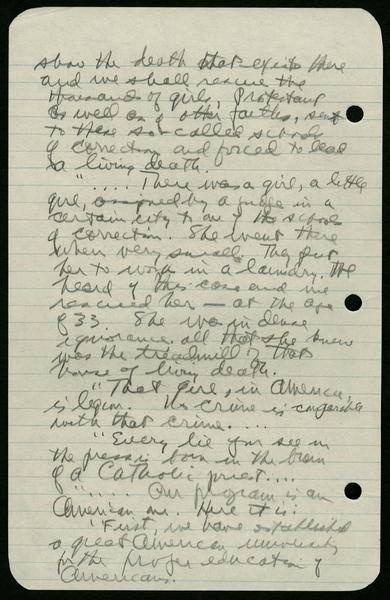 show the death that exists there
and we shall rescue the
thousands of girls, Protestant
as well as of other faiths, sent
to these so called schools
of correction and forced to lead
a living death.
"..... There was a girl, a little
girl, assigned by a judge in a
certain city to one of the schools
of correction. She went there
when very small. They put
her to work in a laundry. We
heard of this case and we
rescued her — at the age
of 33. She was in dense
ignorance all that she knew
was the treadmill of that
house of living death.
"That girl, in America,
is legion. No crime is comparable
with that crime....
"Every lie you see in
the press is born in the brain
of a Catholic priest....
"..... Our program is an
American one. Here it is:
"First, we have established
a great American university
for the proper education of
Americans.